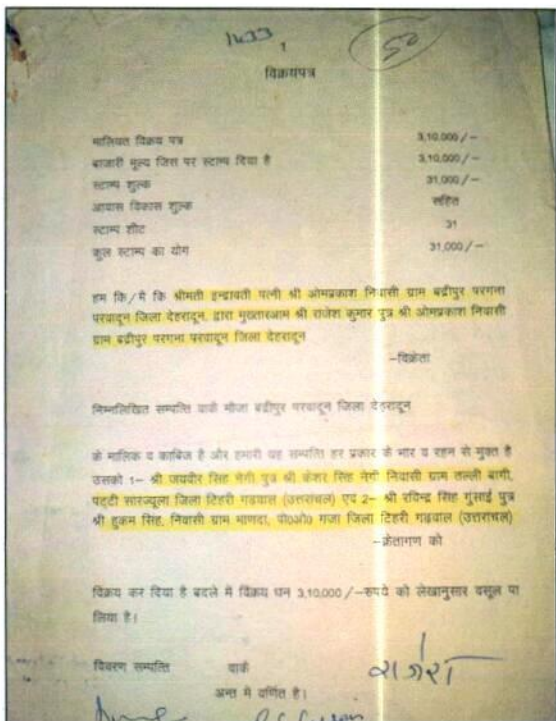 1633
1
50
विक्रयपत्र
मालियत विक्रय पत्र 3,10,000/-
बाजारी मूल्य जिस पर स्टाम्प दिया है 3,10,000/-
स्टाम्प शुल्क 31,000/-
आवास विकास शुल्क सहित
स्टाम्प शीट 31
कुल स्टाम्प का योग 31,000/-
हम कि/मैं कि श्रीमती इन्द्रावती पत्नी श्री ओमप्रकाश निवासी ग्राम बद्रीपुर परगना
परवादून जिला देहरादून द्वारा मुख्तारआम श्री राजेश कुमार पुत्र श्री ओमप्रकाश निवासी
ग्राम बद्रीपुर परगना परवादून जिला देहरादून
-विक्रेता
निम्नलिखित सम्पत्ति वाके मौजा बद्रीपुर परवादून जिला देहरादून
के मालिक व काबिज है और हमारी यह सम्पत्ति हर प्रकार के भार व रहन से मुक्त है
उसको 1- श्री जयवीर सिंह नेगी पुत्र श्री केशर सिंह नेगी निवासी ग्राम तल्ली बागी,
पट्टी सारज्यूला जिला टिहरी गढवाल (उत्तरांचल) एवं 2- श्री रविन्द्र सिंह गुसाई पुत्र
श्री हुकम सिंह, निवासी ग्राम भाणदा, पो०ओ० गजा जिला टिहरी गढवाल (उत्तरांचल)
-क्रेतागण को
विक्रय कर दिया है बदले में विक्रय धन 3,10,000/-रुपये को लेखानुसार वसूल पा
लिया है।
विवरण सम्पत्ति वाके
राजेश
अन्त में वर्णित है।